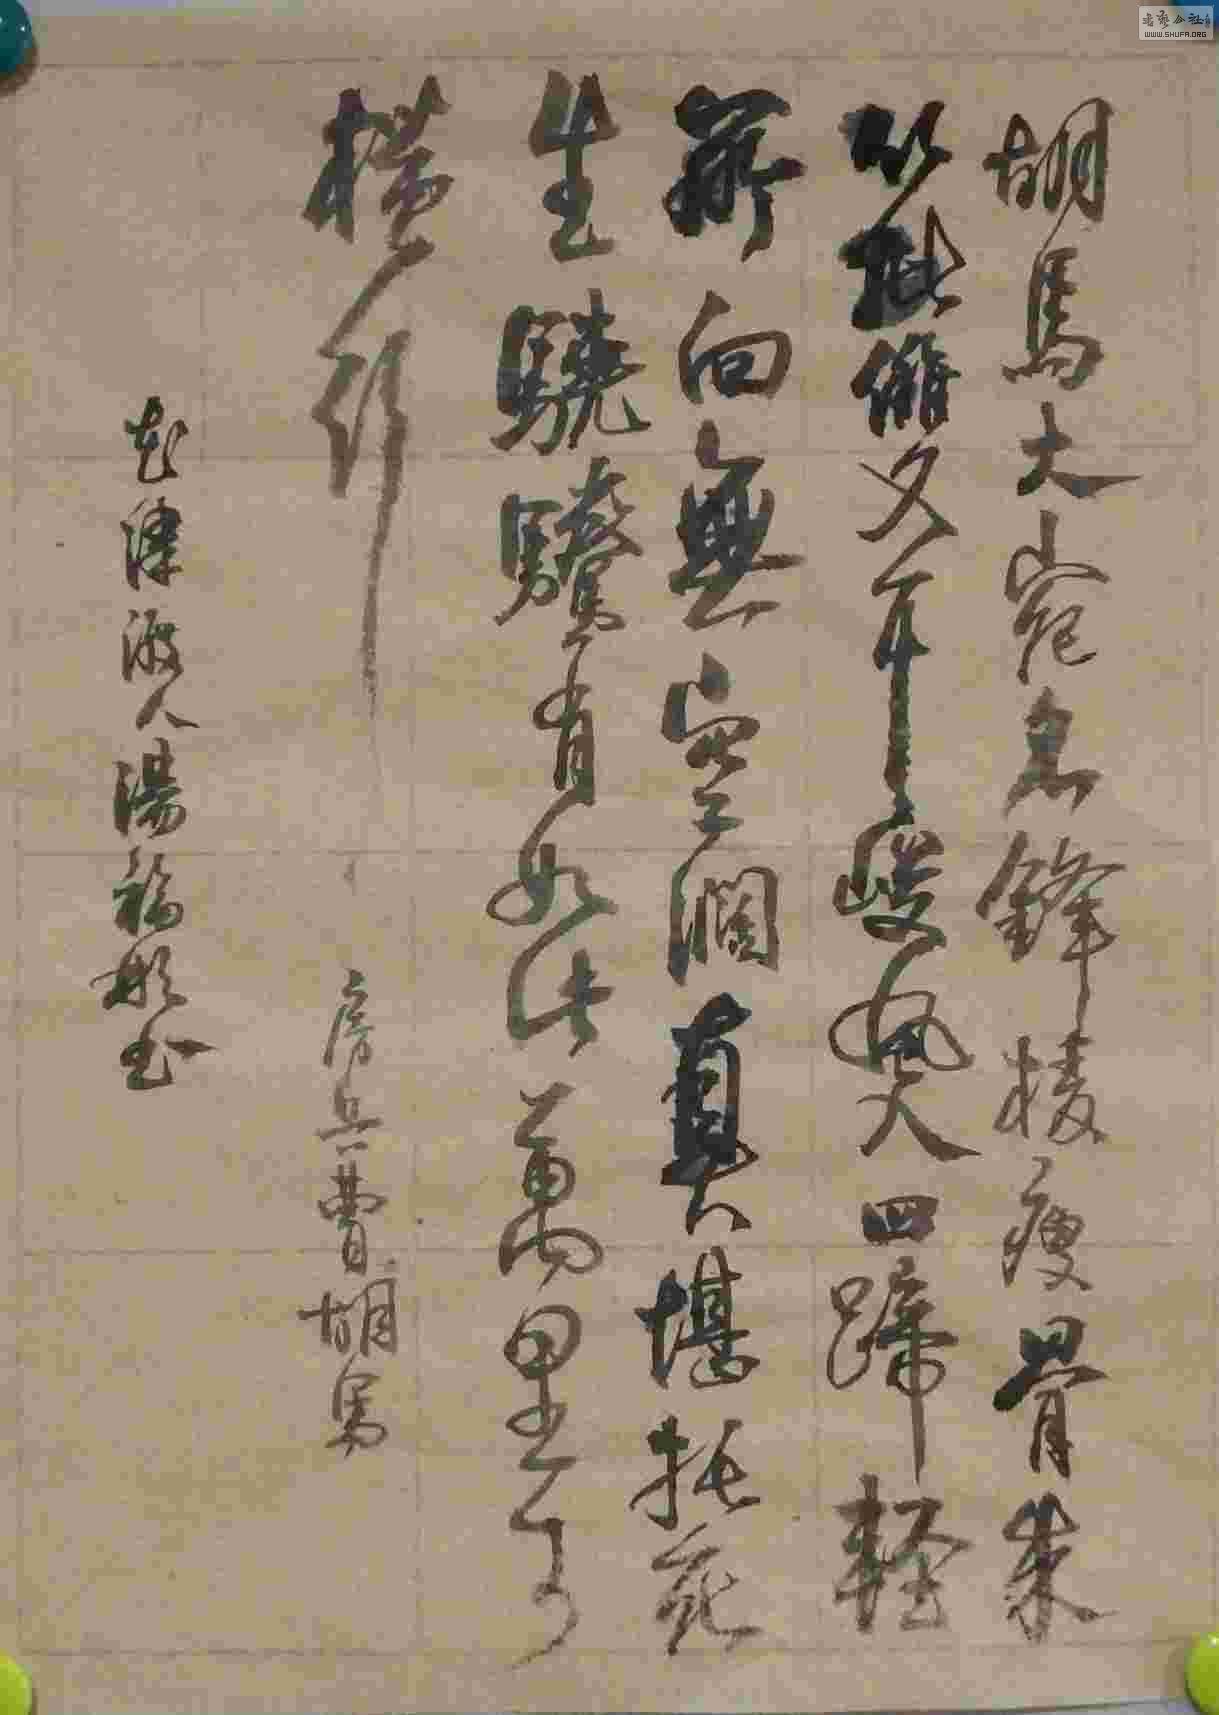 胡馬大宛名鋒棱瘦骨成
竹批雙耳峻風入四蹄輕
所向無空濶真堪托死
生驍騰有如此萬里可
橫行
房兵曹胡馬
津渡人湯福书
书艺公社
WWW.SHUFA.ORG